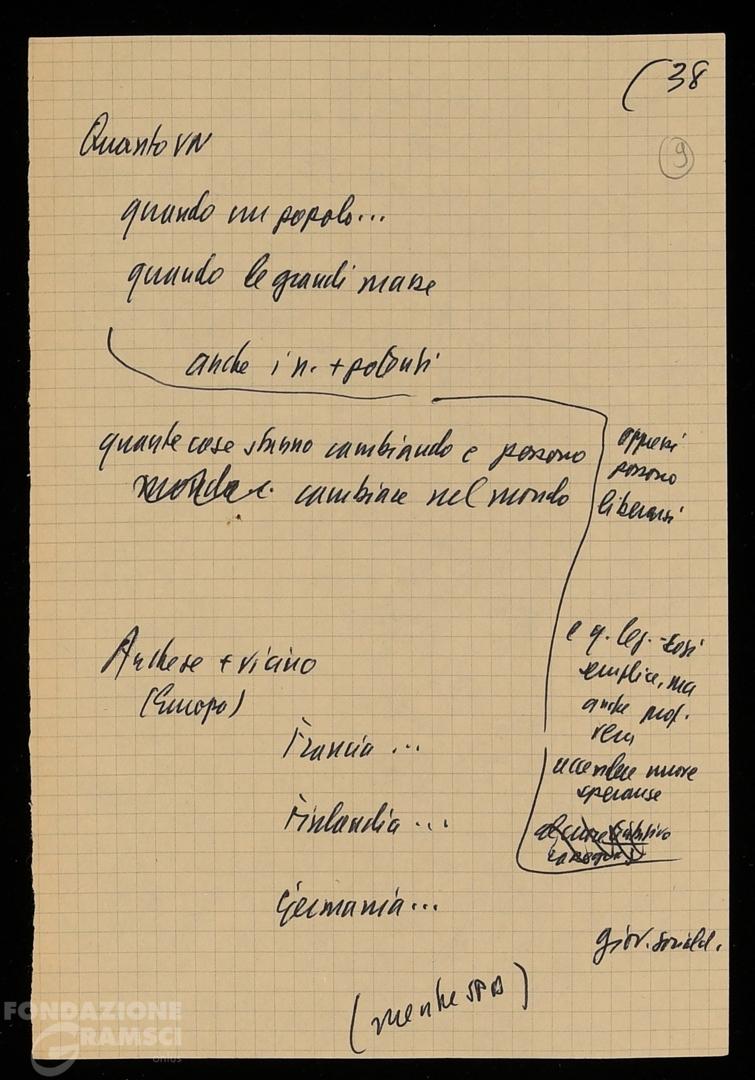 (38
9
Quanto VN
quando un popolo...
quando le grandi masse
anche i n. + potenti
quante cose stanno cambiando e possono
cambiare nel mondo
oppressi
possono
liberarsi
Anche se + vicino
(Europa)
Francia ...
Finlandia ...
Germania ...
e q. leg. - così
semplice, ma
anche prof.
vera
accendere nuove
speranze
giov. sociald.
(mentre SPD)
FONDAZIONE
GRAMSCI
onlus